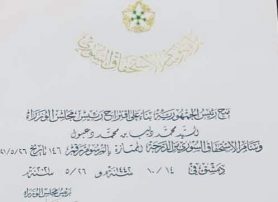 وسام الاستحقاق السوري
يمنح رئيس الجمهورية بناء على اقتراح رئيس مجلس الوزراء
السيد محمد ديب بن محمد دعبول
وسام الاستحقاق السوري من الدرجة الممتازة بالمرسوم رقم ١٤٦ تاريخ ٢٦/٥/
دمشق في ١٤/١٠/ ١٤٤٢ هـ و ٢٦/٥/
رئيس مجلس الوزراء